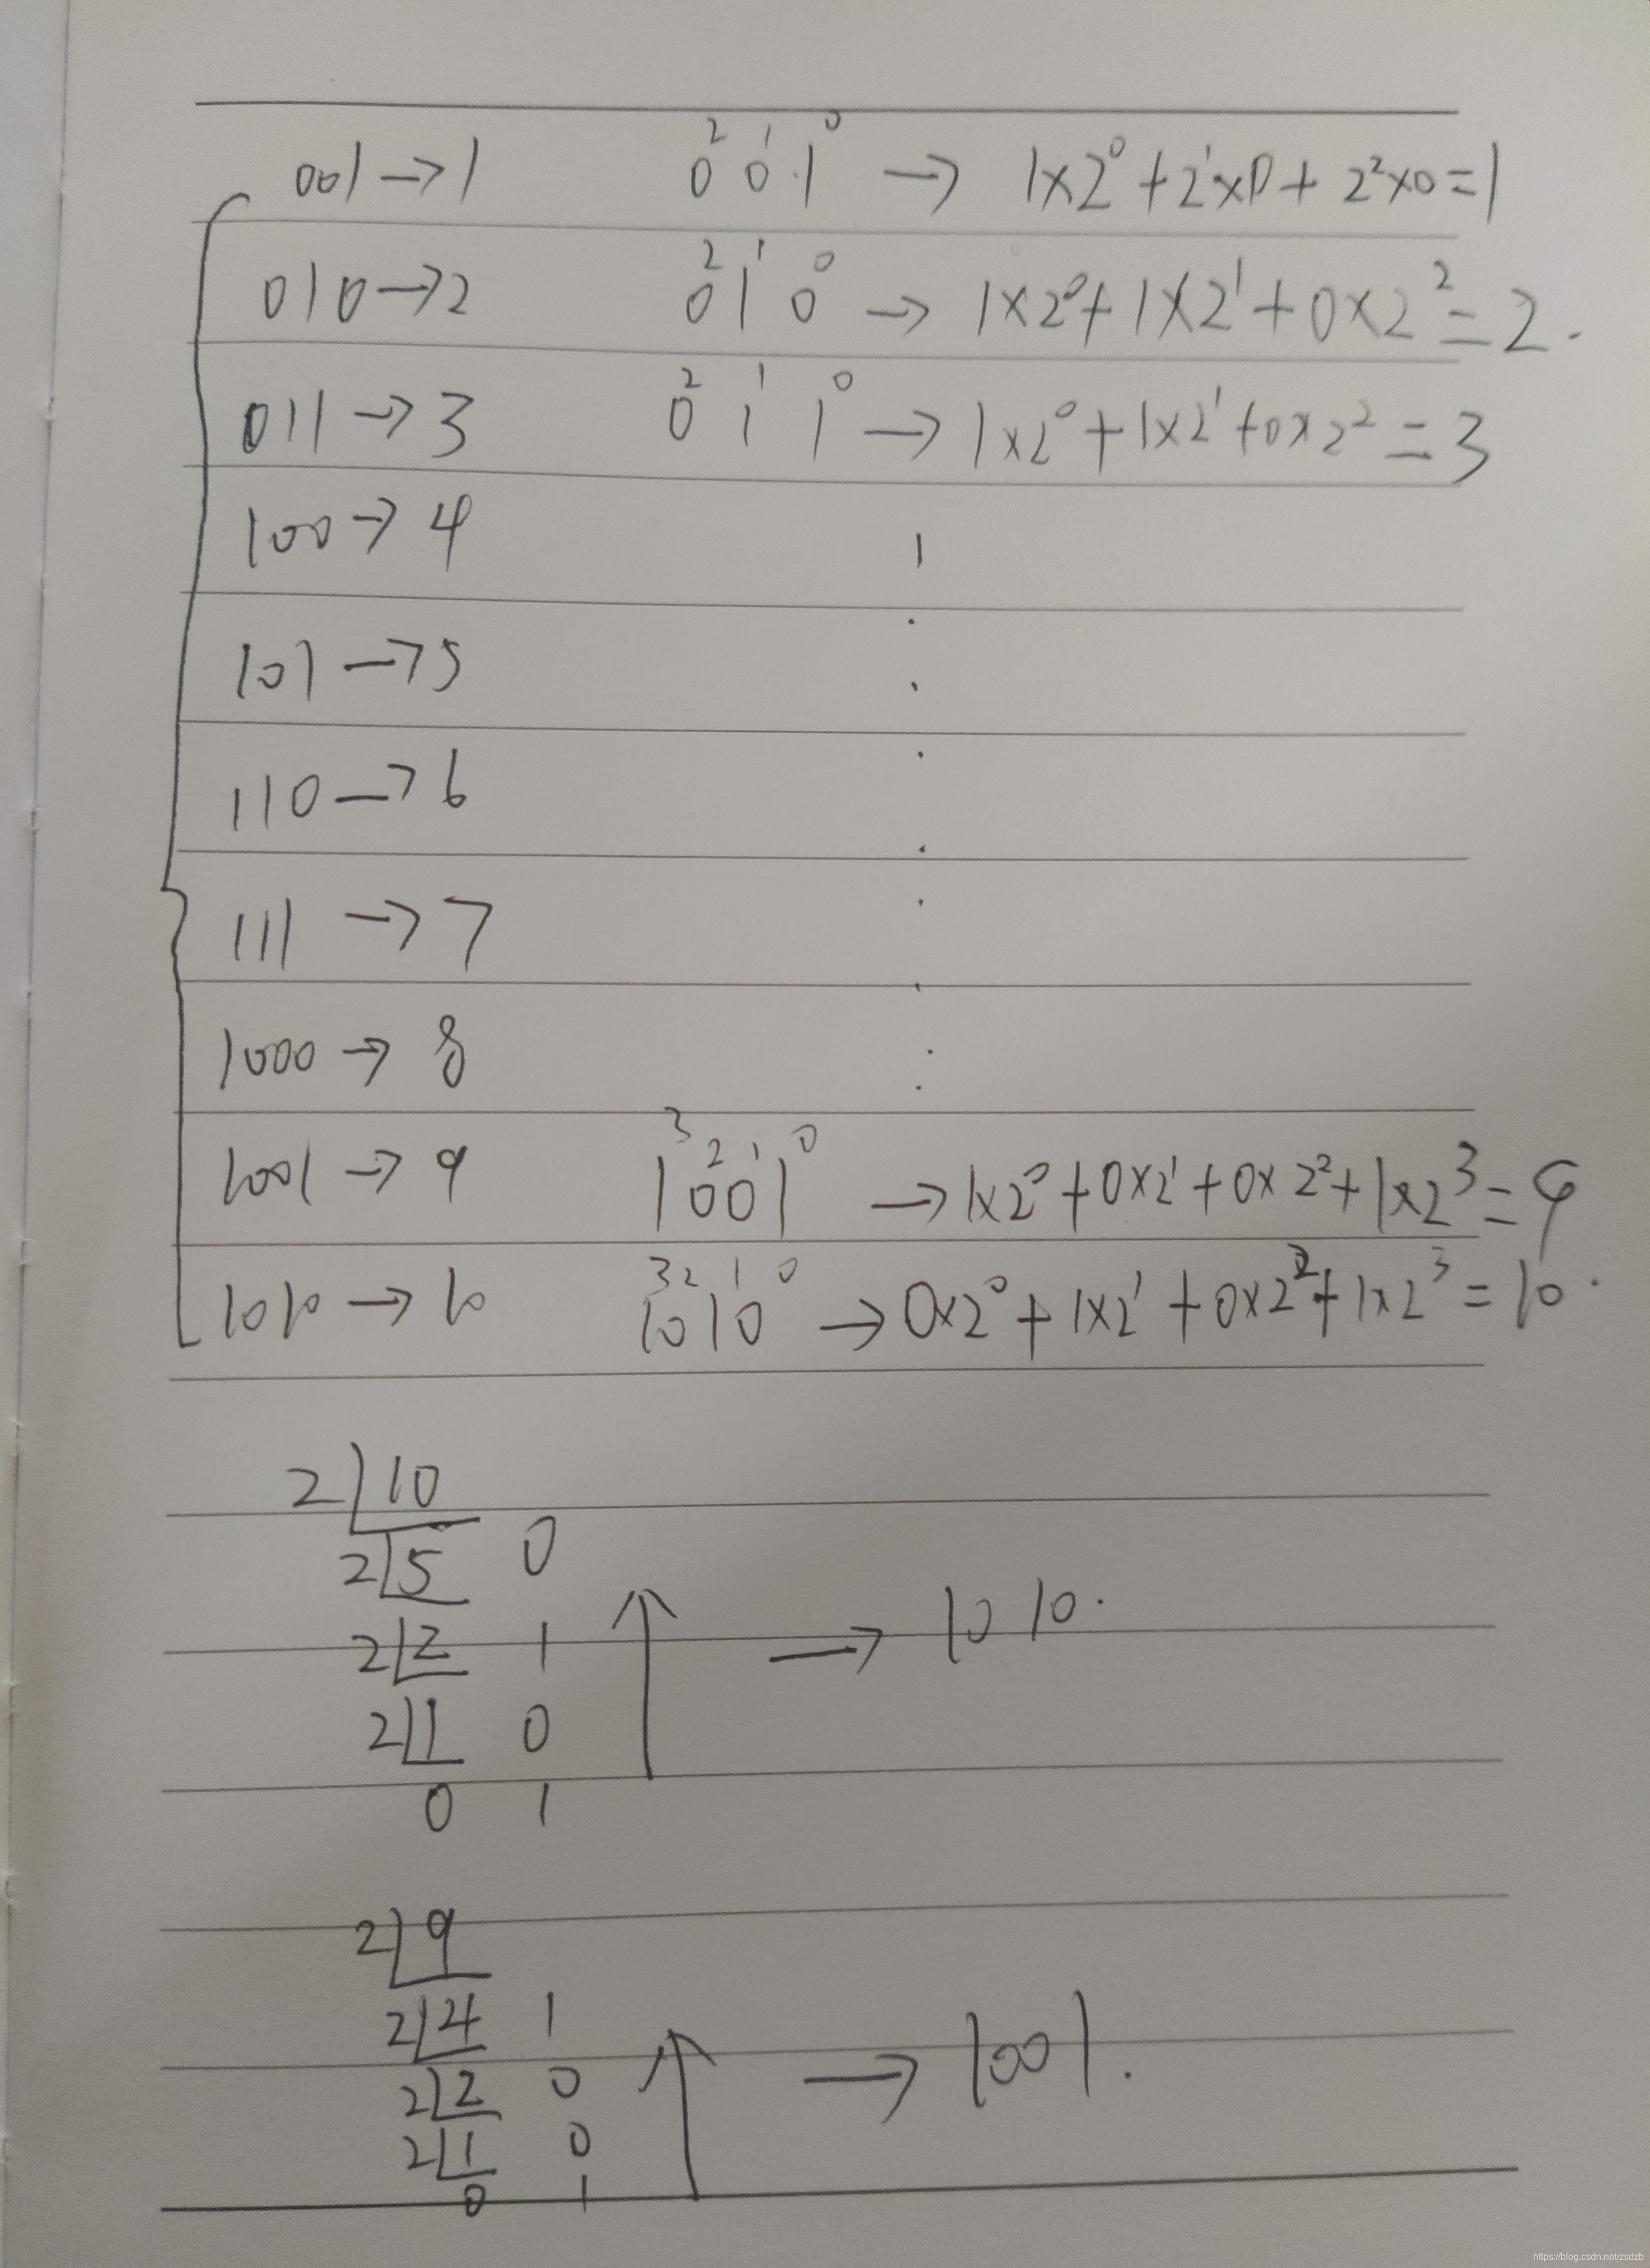 001→1   2 1 0
0 0 1 → 1×2⁰+2¹×0+2²×0=1
010→2   2 1 0
0 1 0 → 1×2⁰+1×2¹+0×2²=2.
011→3   2 1 0
0 1 1 → 1×2⁰+1×2¹+0×2²=3
100→4
101→5
110→6
111→7
1000→8
1001→9   3 2 1 0
1001 → 1×2⁰+0×2¹+0×2²+1×2³=9
1010→10   3 2 1 0
1010 → 0×2⁰+1×2¹+0×2²+1×2³=10.
2 10
2 5 0
2 2 1 → 1010.
2 1 0
0 1
2 9
2 4 1
2 2 0 → 1001.
2 1 0
0 1
https://blog.csdn.net/zsdzb